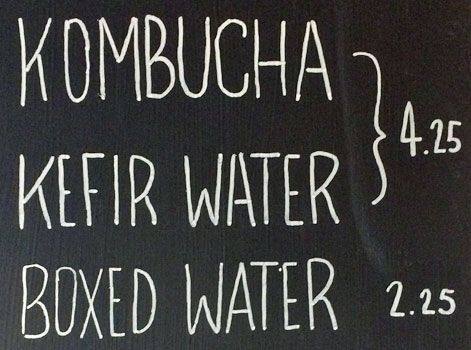 KOMBUCHA
4.25
KEFIR WATER
BOXED WATER 2.25